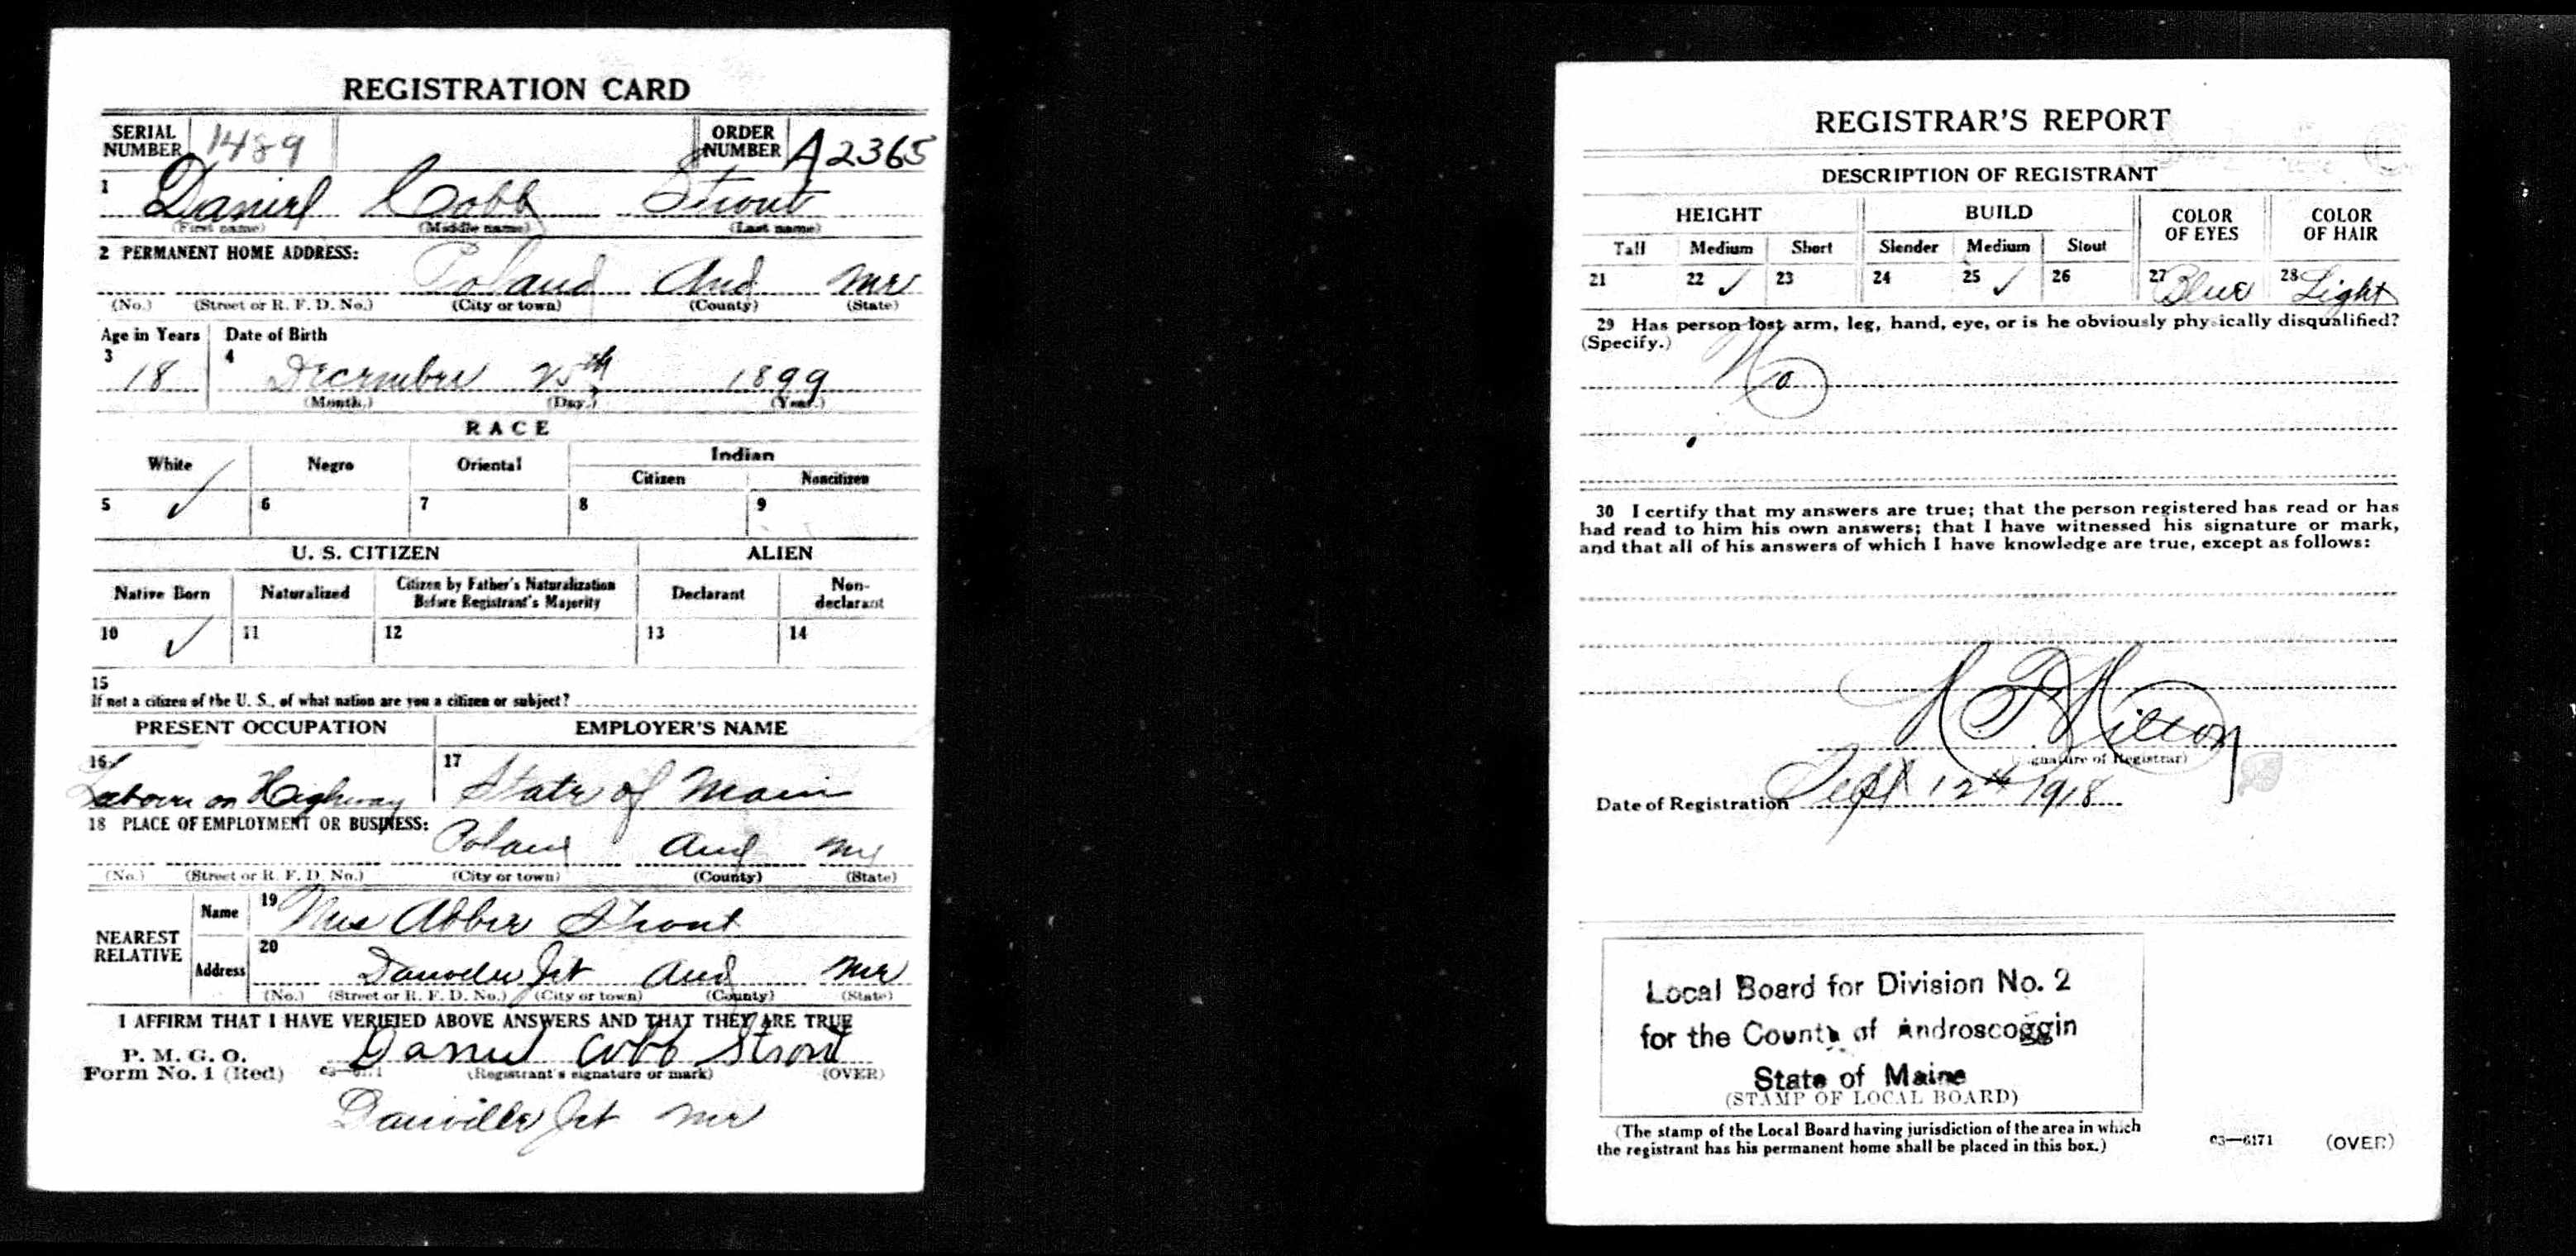 REGISTRATION CARD
SERIAL NUMBER 1489 ORDER NUMBER A2365
1 Daniel Cobb Strout
(First name) (Middle name) (Last name)
2 PERMANENT HOME ADDRESS:
Poland And Me
(No.) (Street or R. F. D. No.) (City or town) (County) (State)
Age in Years Date of Birth
3 18 4 December 25th 1899
(Month.) (Day.) (Year.)
RACE
White Negro Oriental Indian
Citizen Noncitizen
5 ✓ 6 7 8 9
U. S. CITIZEN ALIEN
Native Born Naturalized Citizen by Father's Naturalization Before Registrant's Majority Declarant Non-declarant
10 ✓ 11 12 13 14
15
If not a citizen of the U. S., of what nation are you a citizen or subject?
PRESENT OCCUPATION EMPLOYER'S NAME
16 on Highway 17 State of Main
18 PLACE OF EMPLOYMENT OR BUSINESS:
Poland And Me
(No.) (Street or R. F. D. No.) (City or town) (County) (State)
NEAREST RELATIVE
Name 19 Mrs Abbie Strout
Address 20 Danville Jct And Me
(No.) (Street or R. F. D. No.) (City or town) (County) (State)
I AFFIRM THAT I HAVE VERIFIED ABOVE ANSWERS AND THAT THEY ARE TRUE
P. M. G. O.
Form No. 1 (Red) 03—6171 Daniel Cobb Strout
(Registrant's signature or mark) (OVER)
Danville Jct Me
REGISTRAR'S REPORT
DESCRIPTION OF REGISTRANT
HEIGHT BUILD COLOR OF EYES COLOR OF HAIR
Tall Medium Short Slender Medium Stout
21 22 ✓ 23 24 25 ✓ 26 27 Blue 28 Light
29 Has person lost arm, leg, hand, eye, or is he obviously physically disqualified?
(Specify.)
No
30 I certify that my answers are true; that the person registered has read or has
had read to him his own answers; that I have witnessed his signature or mark,
and that all of his answers of which I have knowledge are true, except as follows:
(Signature of Registrar)
Date of Registration Sept 12th 1918
Local Board for Division No. 2
for the County of Androscoggin
State of Maine
(STAMP OF LOCAL BOARD)
(The stamp of the Local Board having jurisdiction of the area in which
the registrant has his permanent home shall be placed in this box.)
03—6171 (OVER)